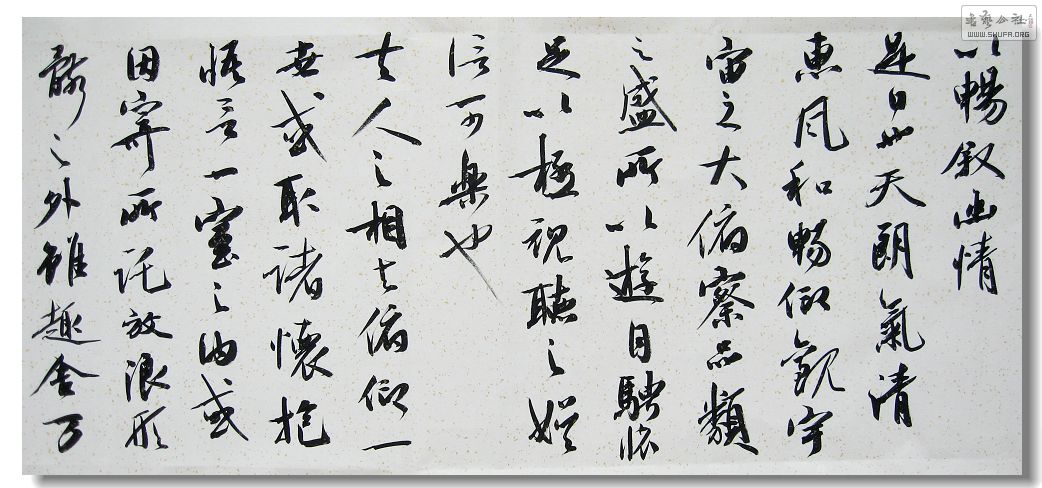 以暢叙幽情
是日也天朗氣清
惠风和暢仰觀宇
宙之大俯察品類
之盛所以遊目騁懷
足以極視聽之娱
信可樂也
夫人之相与俯仰一
世或取諸懷抱
悟言一室之内或
因寄所託放浪形
骸之外雖趣舍万
書藝公社
WWW.SHUFA.ORG